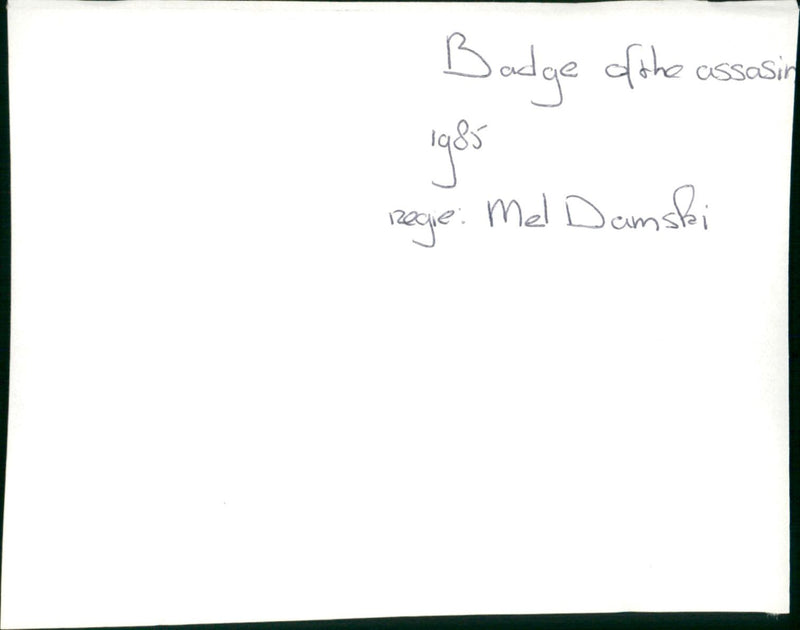 Badge of the assasin
1985
regie: Mel Damski